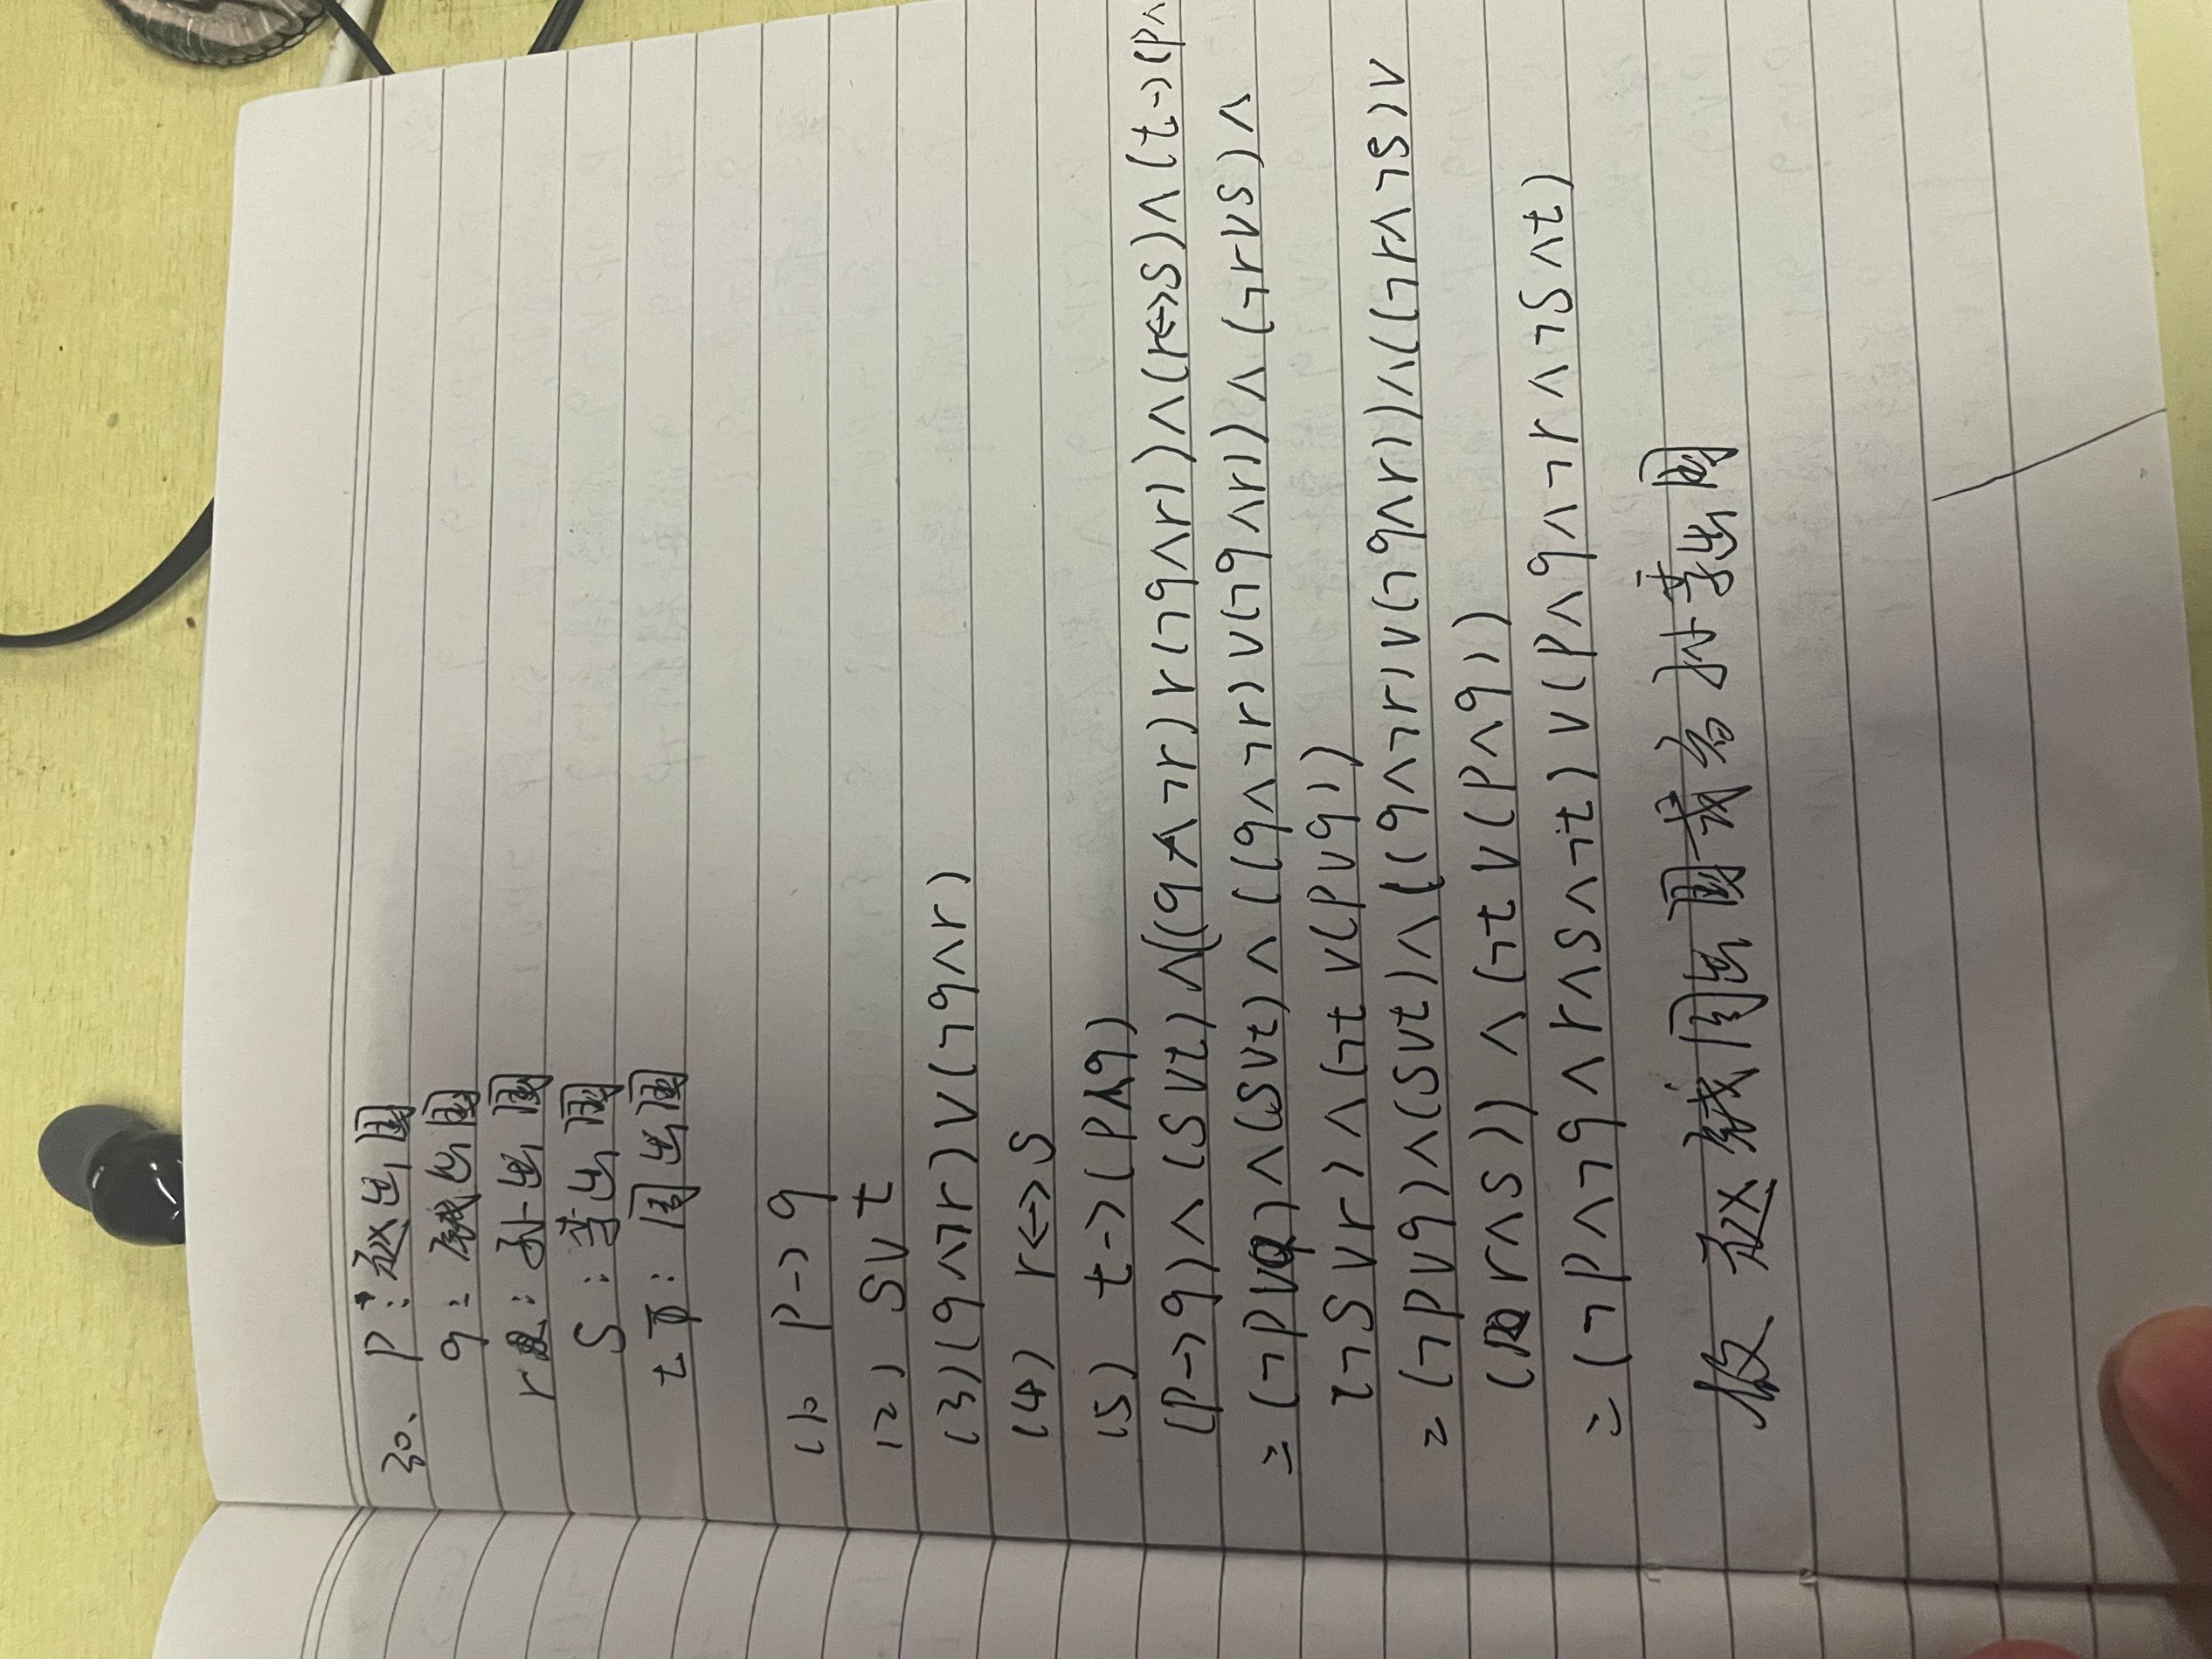 30、 P：赵出国
q：钱出国
r：孙出国
S：李出国
t：周出国
(1) P→q
(2) S∨t
(3) (q∧¬r)∨(¬q∧r)
(4) r↔S
(5) t→(P∧q)
(P→q)∧(S∨t)∧((q∧¬r)∨(¬q∧r))∧(r↔S)∧(t→(P∧
=(¬P∨q)∧(S∨t)∧((q∧¬r)∨(¬q∧r))∧(¬r∨S)∧
(¬S∨r)∧(¬t∨(P∨q))
=(¬P∨q)∧(S∨t)∧((q∧¬r)∨(¬q∧r))∧((¬r∧¬S)∨
(r∧S))∧(¬t∨(P∧q))
=(¬P∧¬q∧r∧S∧¬t)∨(P∧q∧¬r∧¬S∧t)
故 赵钱周出国或者孙李出国